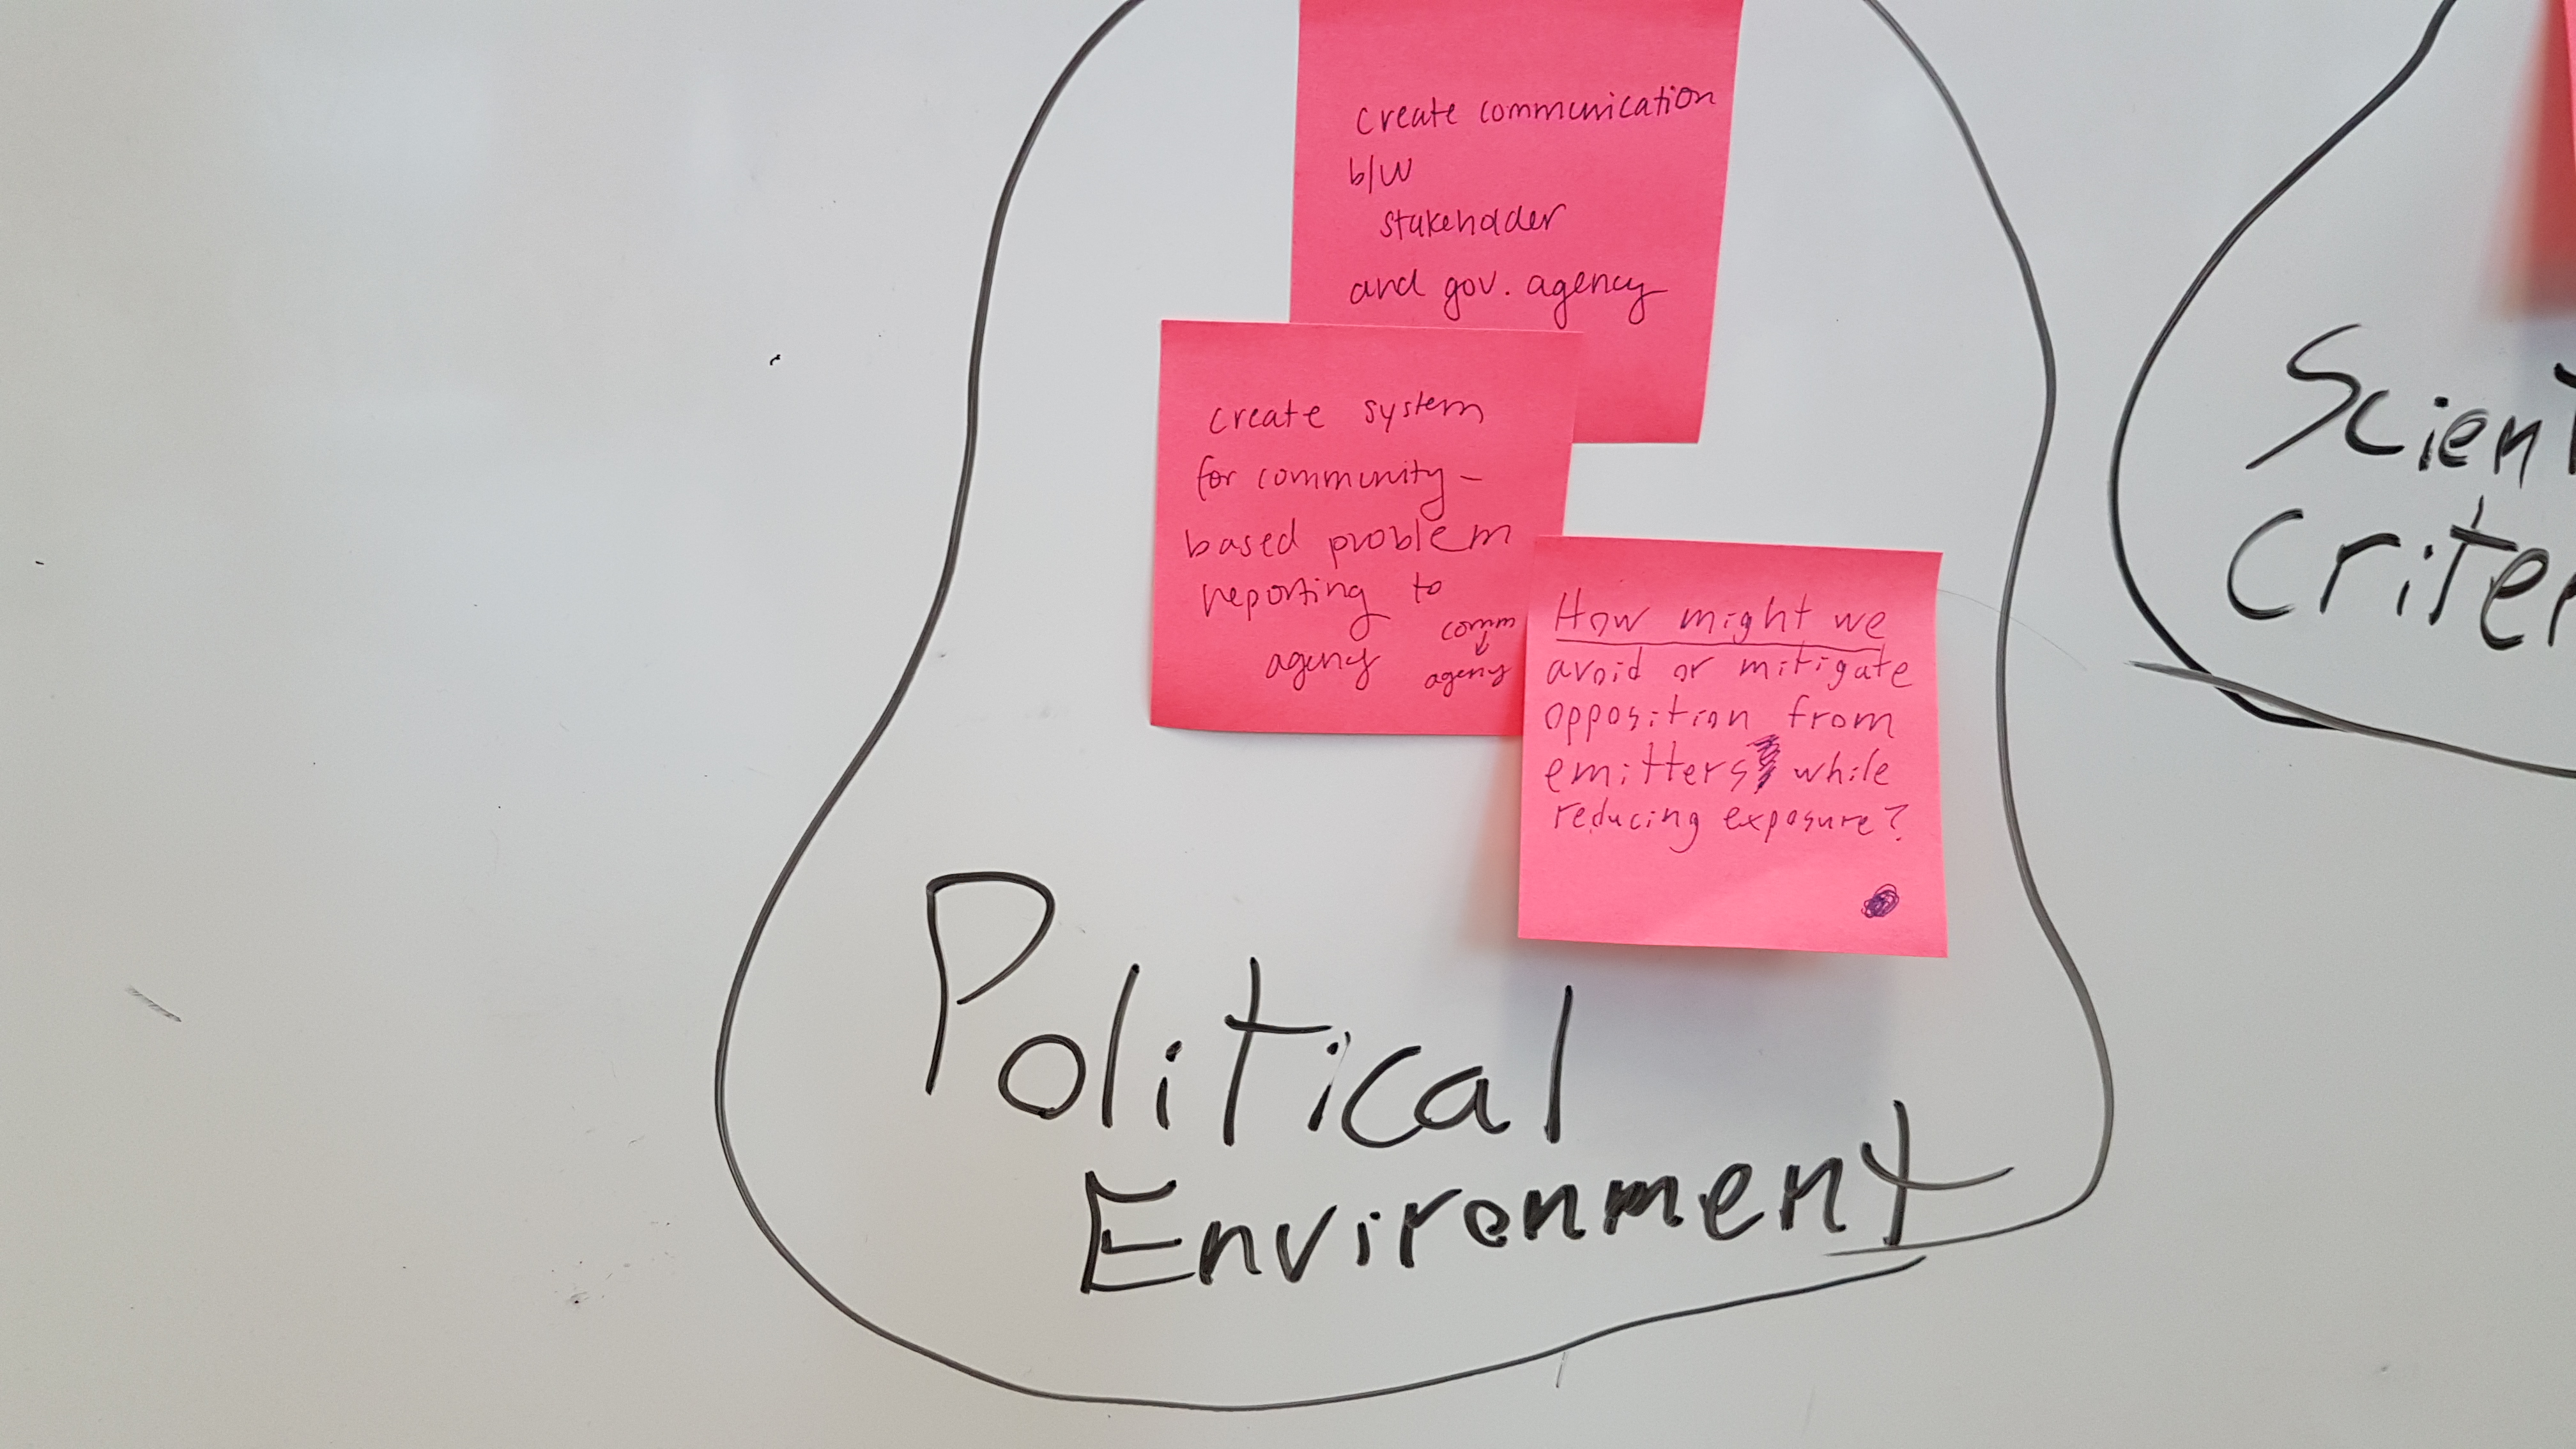 create communication
b/w
stakeholder
and gov. agency
create system
for community-
based problem
reporting to
agency
comm
agency
How might we
avoid or mitigate
opposition from
emitters while
reducing exposure?
Political
Environment
Scient
Criter